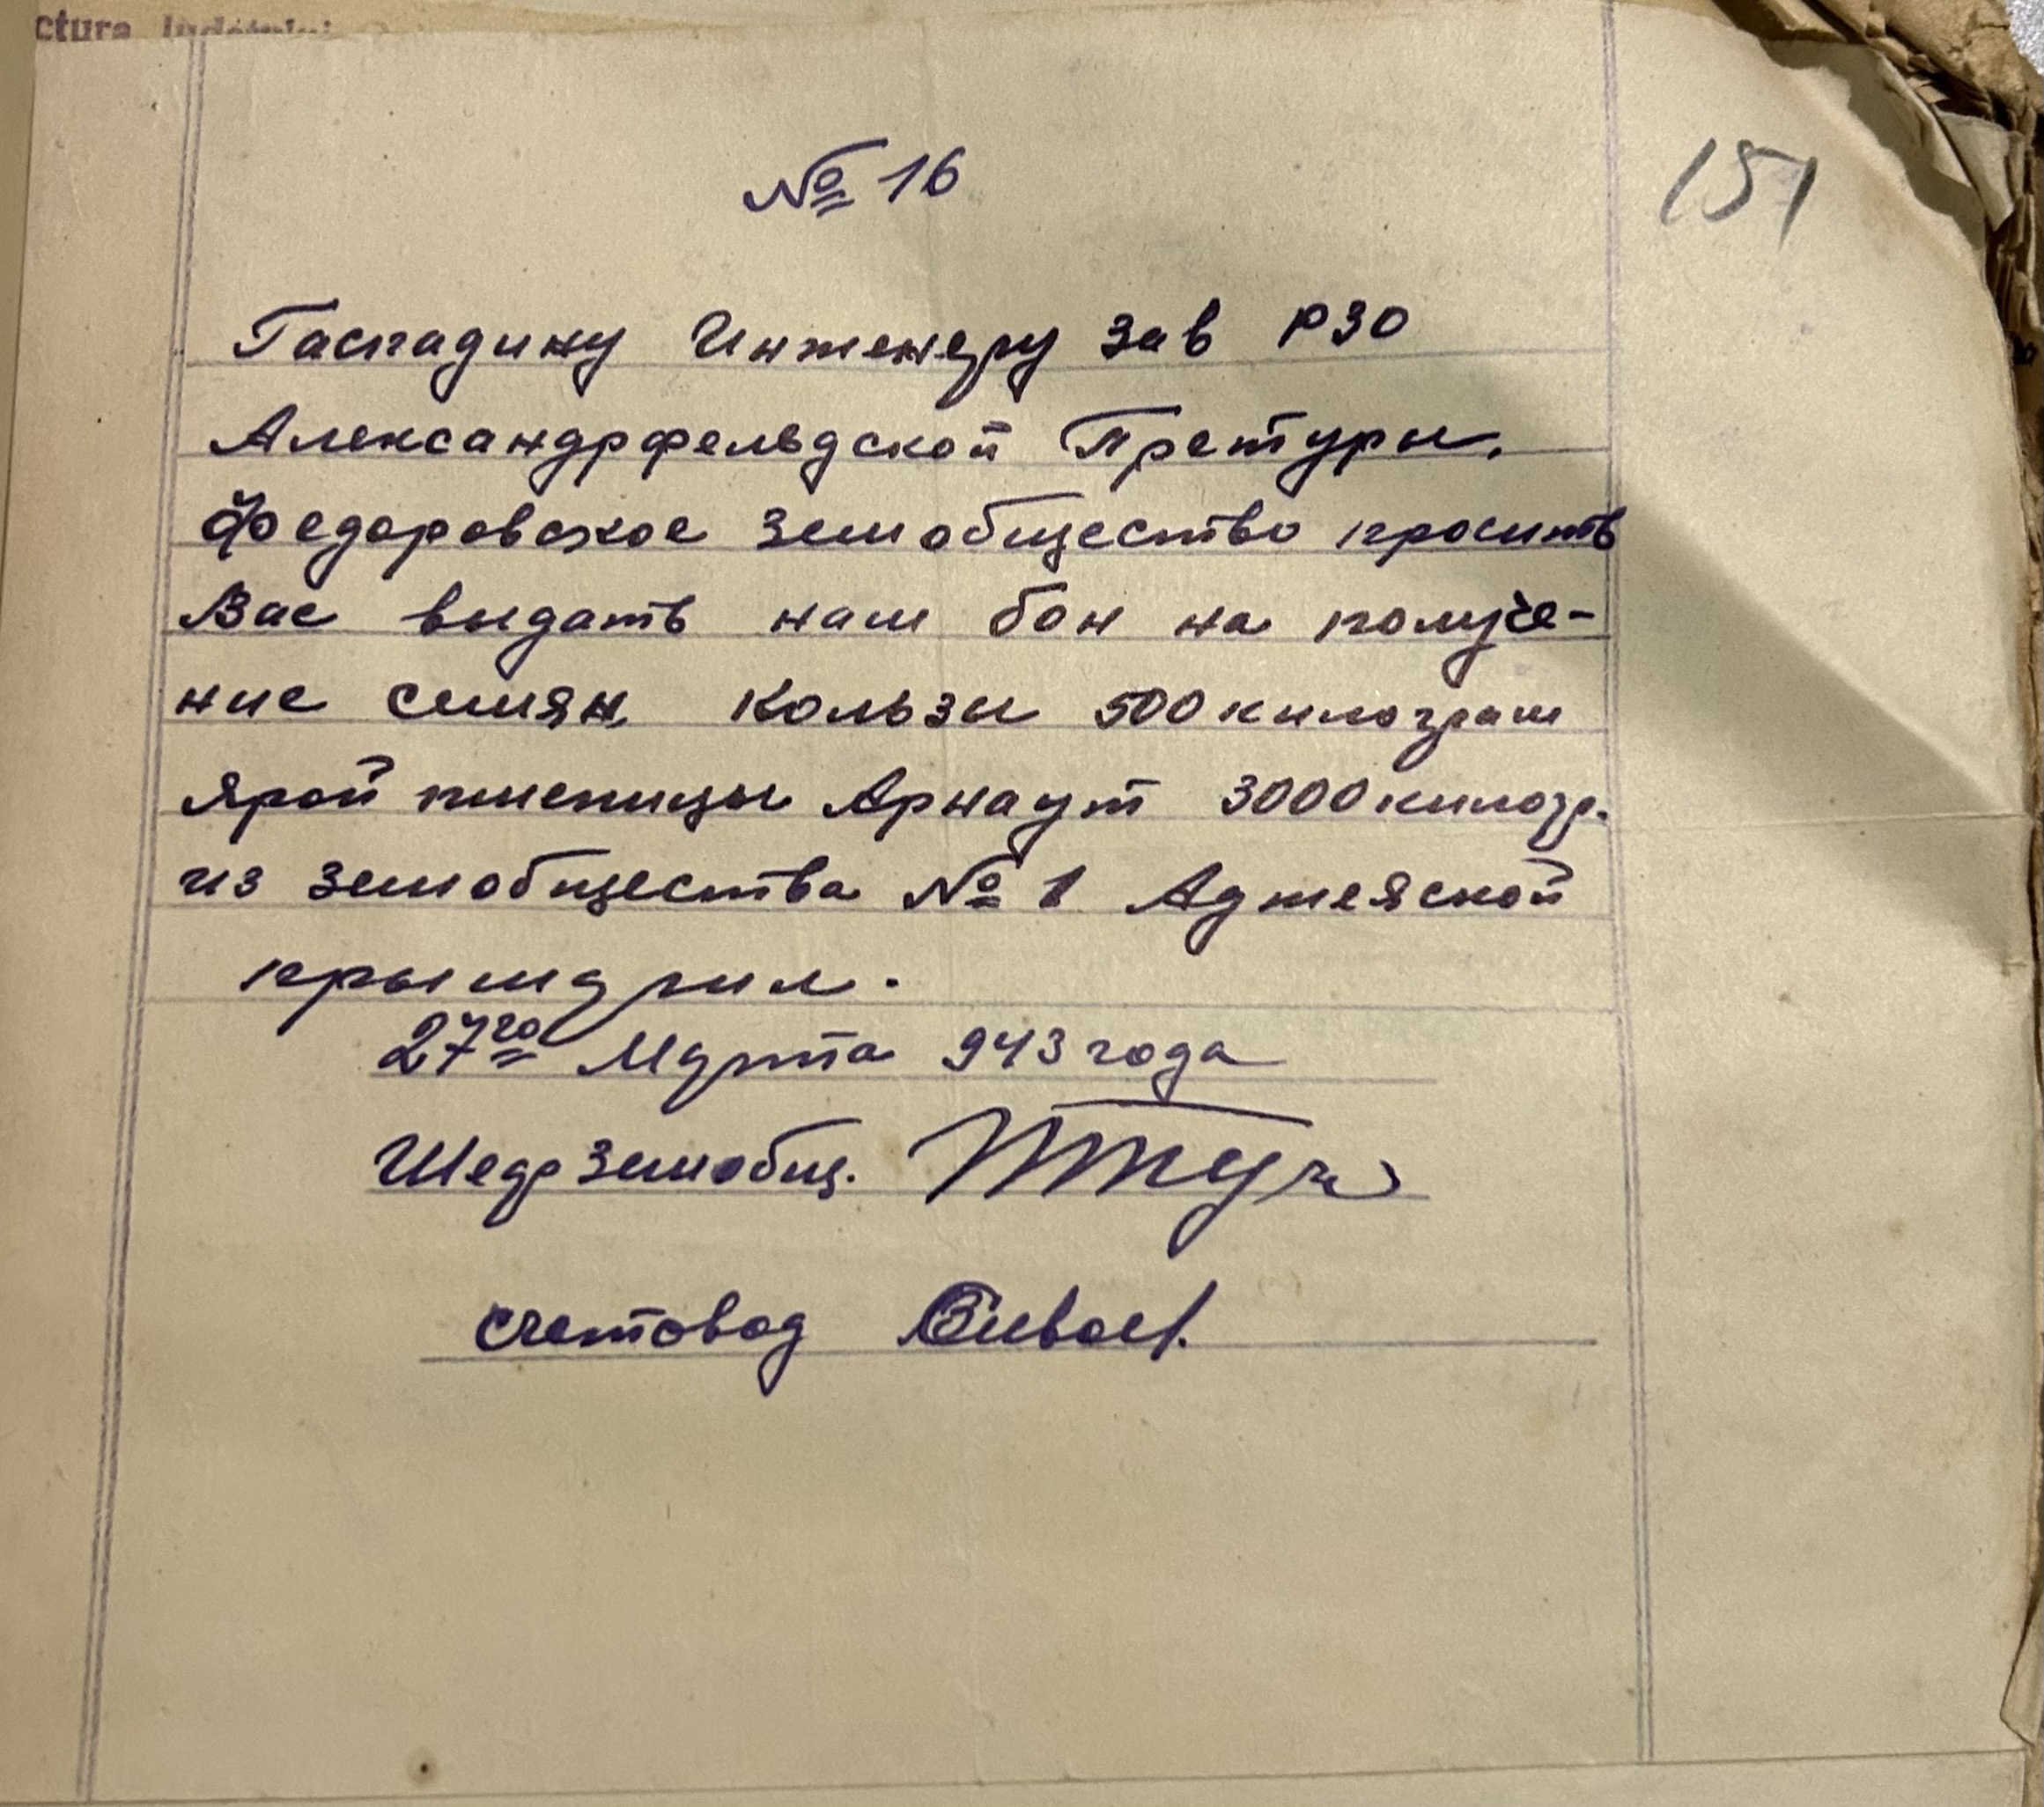 ctura
№ 16
151
Гаспадину Инженеру Зав РЗО
Александрфельдской Претуры.
Федоровское Земобщество просить
Вас выдать нам бон на получе-
ние семян Кользы 500 килограм
ярой пшеницы Арнаут 3000 килогр.
из земобщества № 1 Аджеяской
27го Марта 943 года
Шеф Земобщ.
счетовод